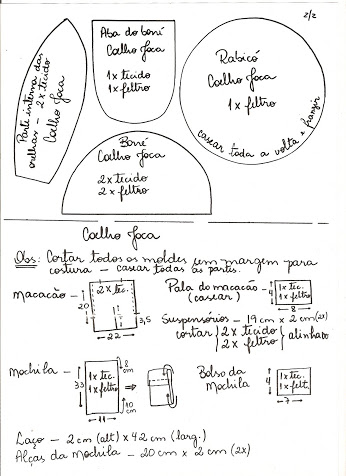 2/2
Aba do boné
Coelho Joca
1x tecido
1x feltro
Parte interna das
orelhas - 2x tecido
Coelho Joca
Rabicó
Coelho Joca
1x feltro
casear toda a volta e franzir
Boné
Coelho Joca
2x tecido
2x feltro
Coelho Joca
Obs: Cortar todos os moldes sem margem para
costura - casear todas as partes.
Macacão -
2x tec.
20
3,5
22
Pala do macacão -
(casear)
4
1x tec.
1x feltro
8
Suspensórios - 19cm x 2cm (2x)
cortar { 2x tecido
2x feltro } alinhavo
Mochila -
33
1x tec.
1x feltro
8
cm
10
cm
11
Bolso da
Mochila
4
1x tec.
1x felt.
7
Laço - 2cm (alt) x 42cm (larg.)
Alças da Mochila - 20cm x 2cm (2x)